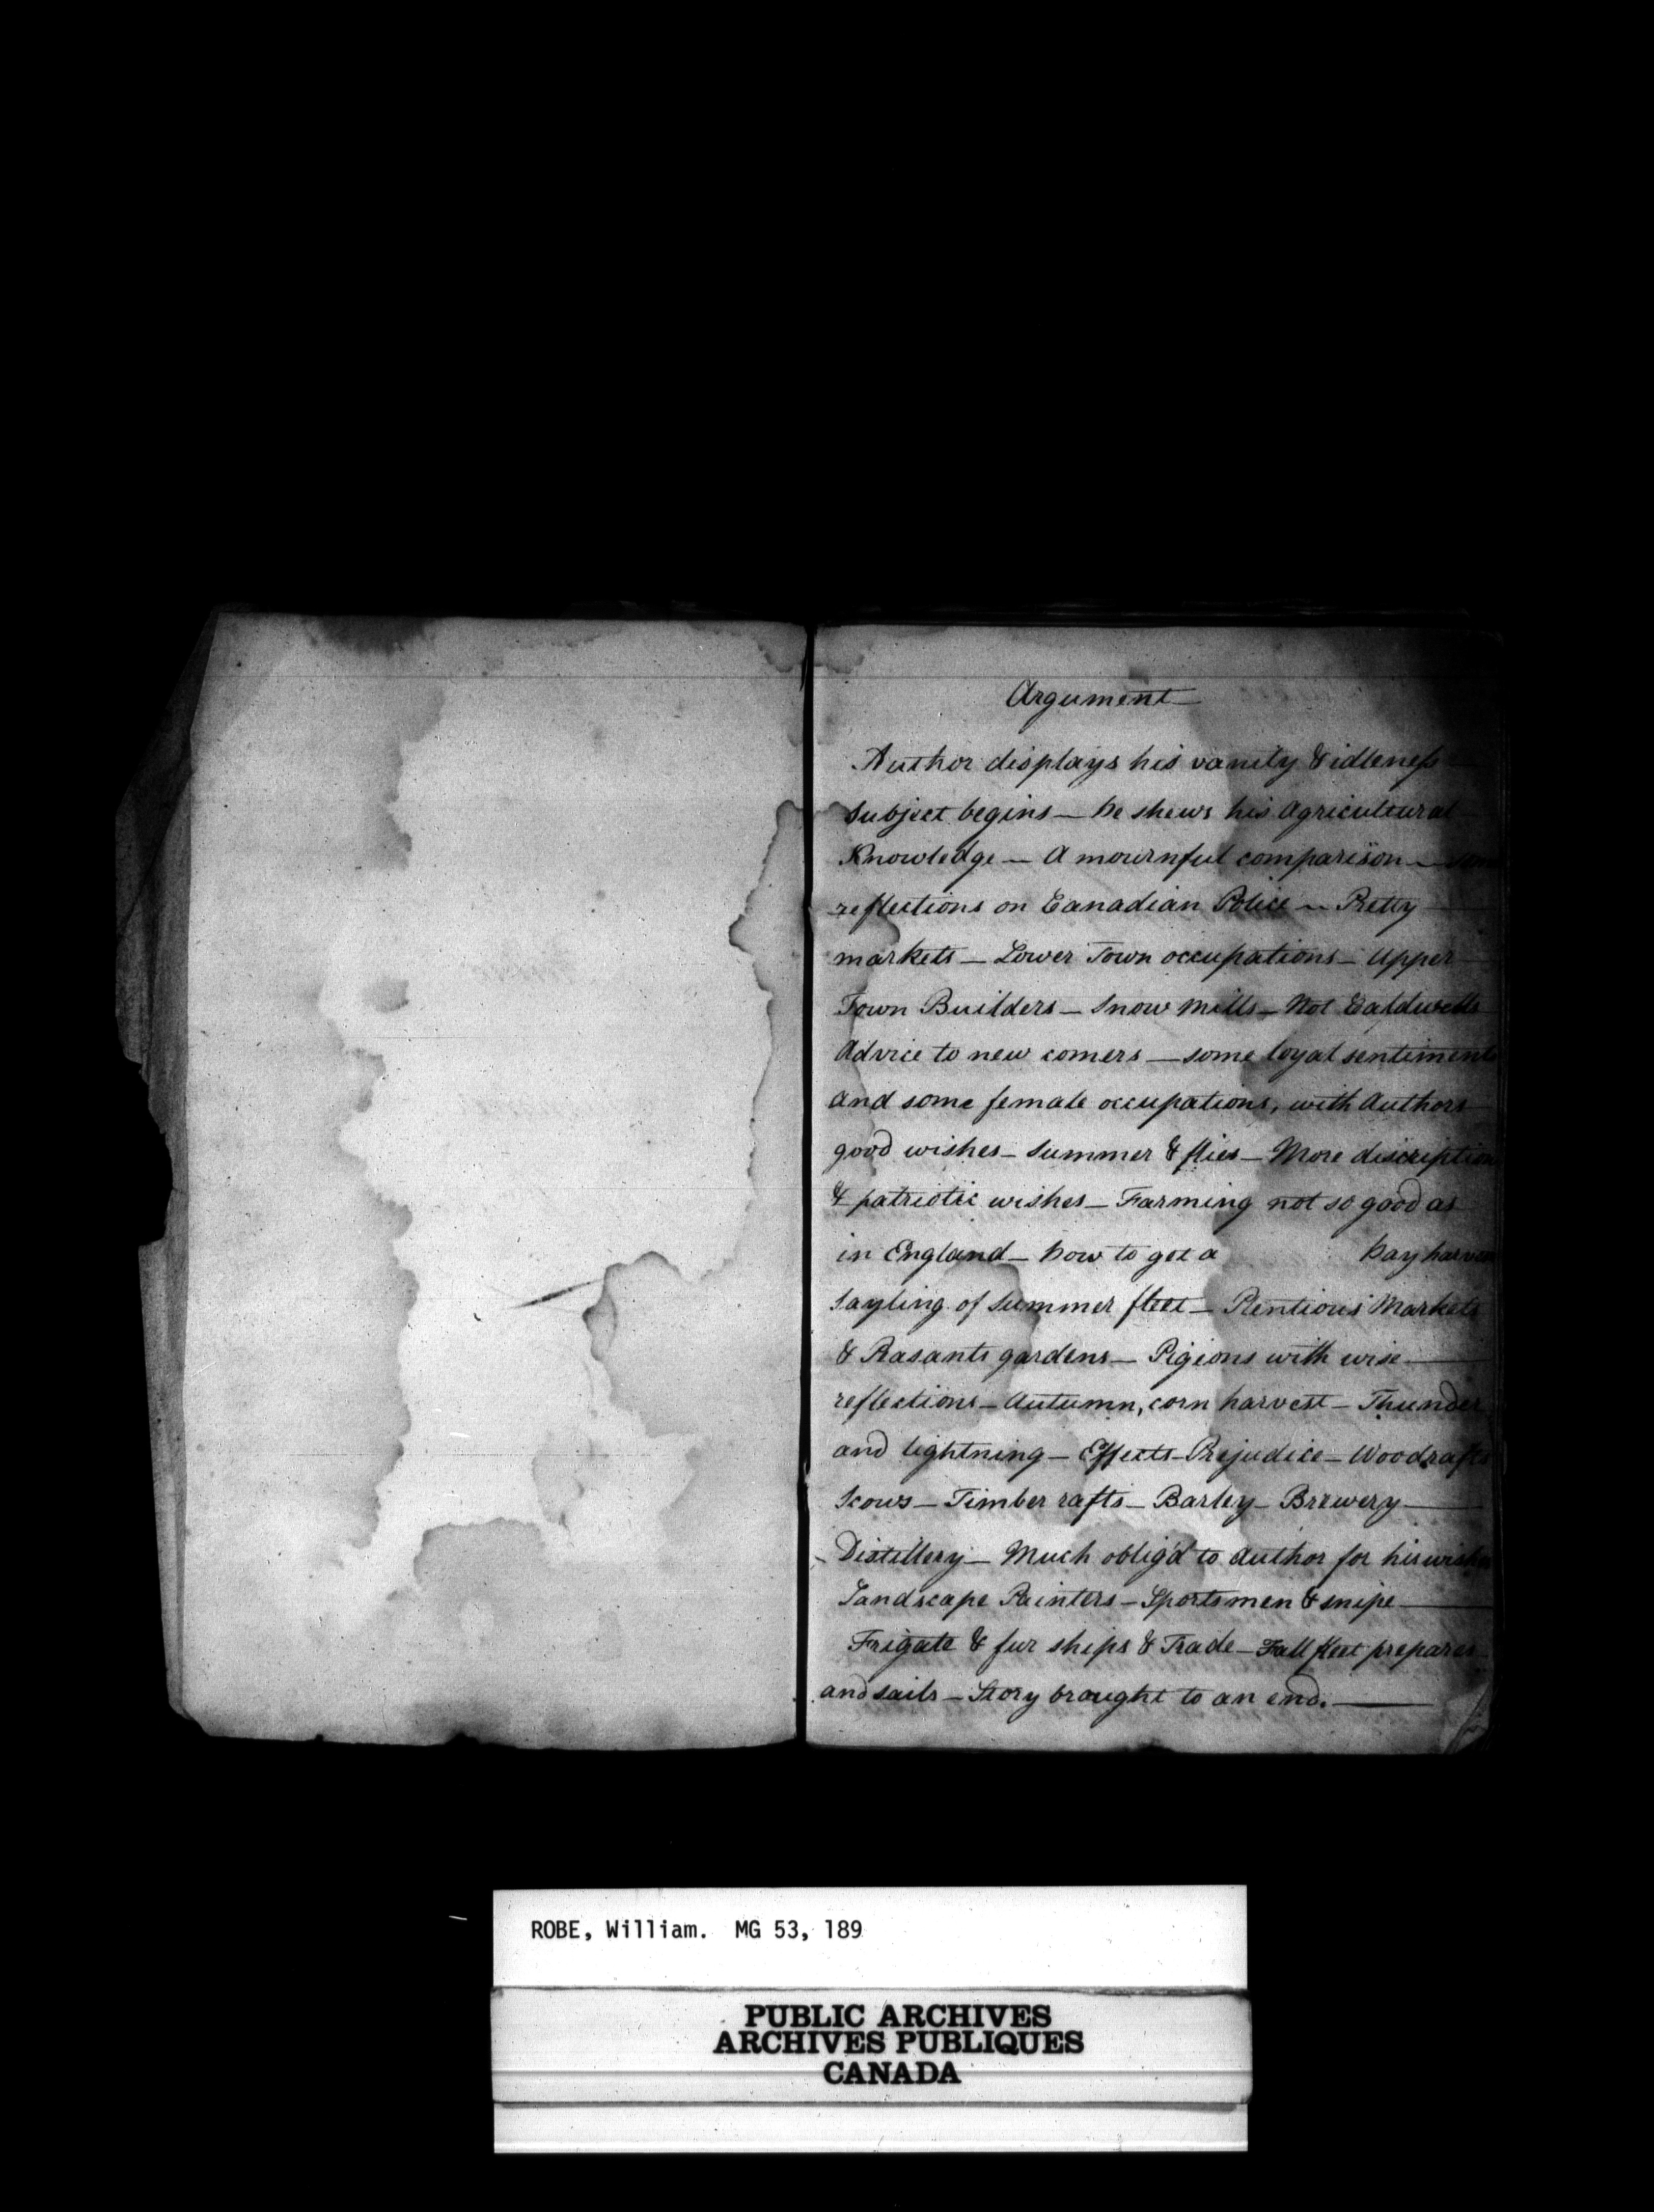 Argument
Author displays his vanity & idleness
subject begins — he shews his Agricultural
Knowledge — A mournful comparison — some
reflections on Canadian Police — Pretty
markets — Lower Town occupations — Upper
Town Builders — Snow Mills — Not Caldwells
Advice to new comers — some loyal sentiments
and some female occupations, with Authors
good wishes — Summer & flies — More discription
& patriotic wishes — Farming not so good as
in England — how to get a hay harvest
sayling of Summer fleet — Plentious Markets
& Pasants gardens — Pigions with wise
reflections — Autumn, corn harvest — Thunder
and lightning — Effects — Prejudice — Wood rafts
Scows — Timber rafts — Barley — Brewery
Distillery — Much oblig'd to Author for his wishes
Landscape Painters — Sportsmen & snipe
Frigate & fur ships & Trade — Fall fleet prepares
and sails — Story brought to an end.
ROBE, William. MG 53, 189
PUBLIC ARCHIVES
ARCHIVES PUBLIQUES
CANADA